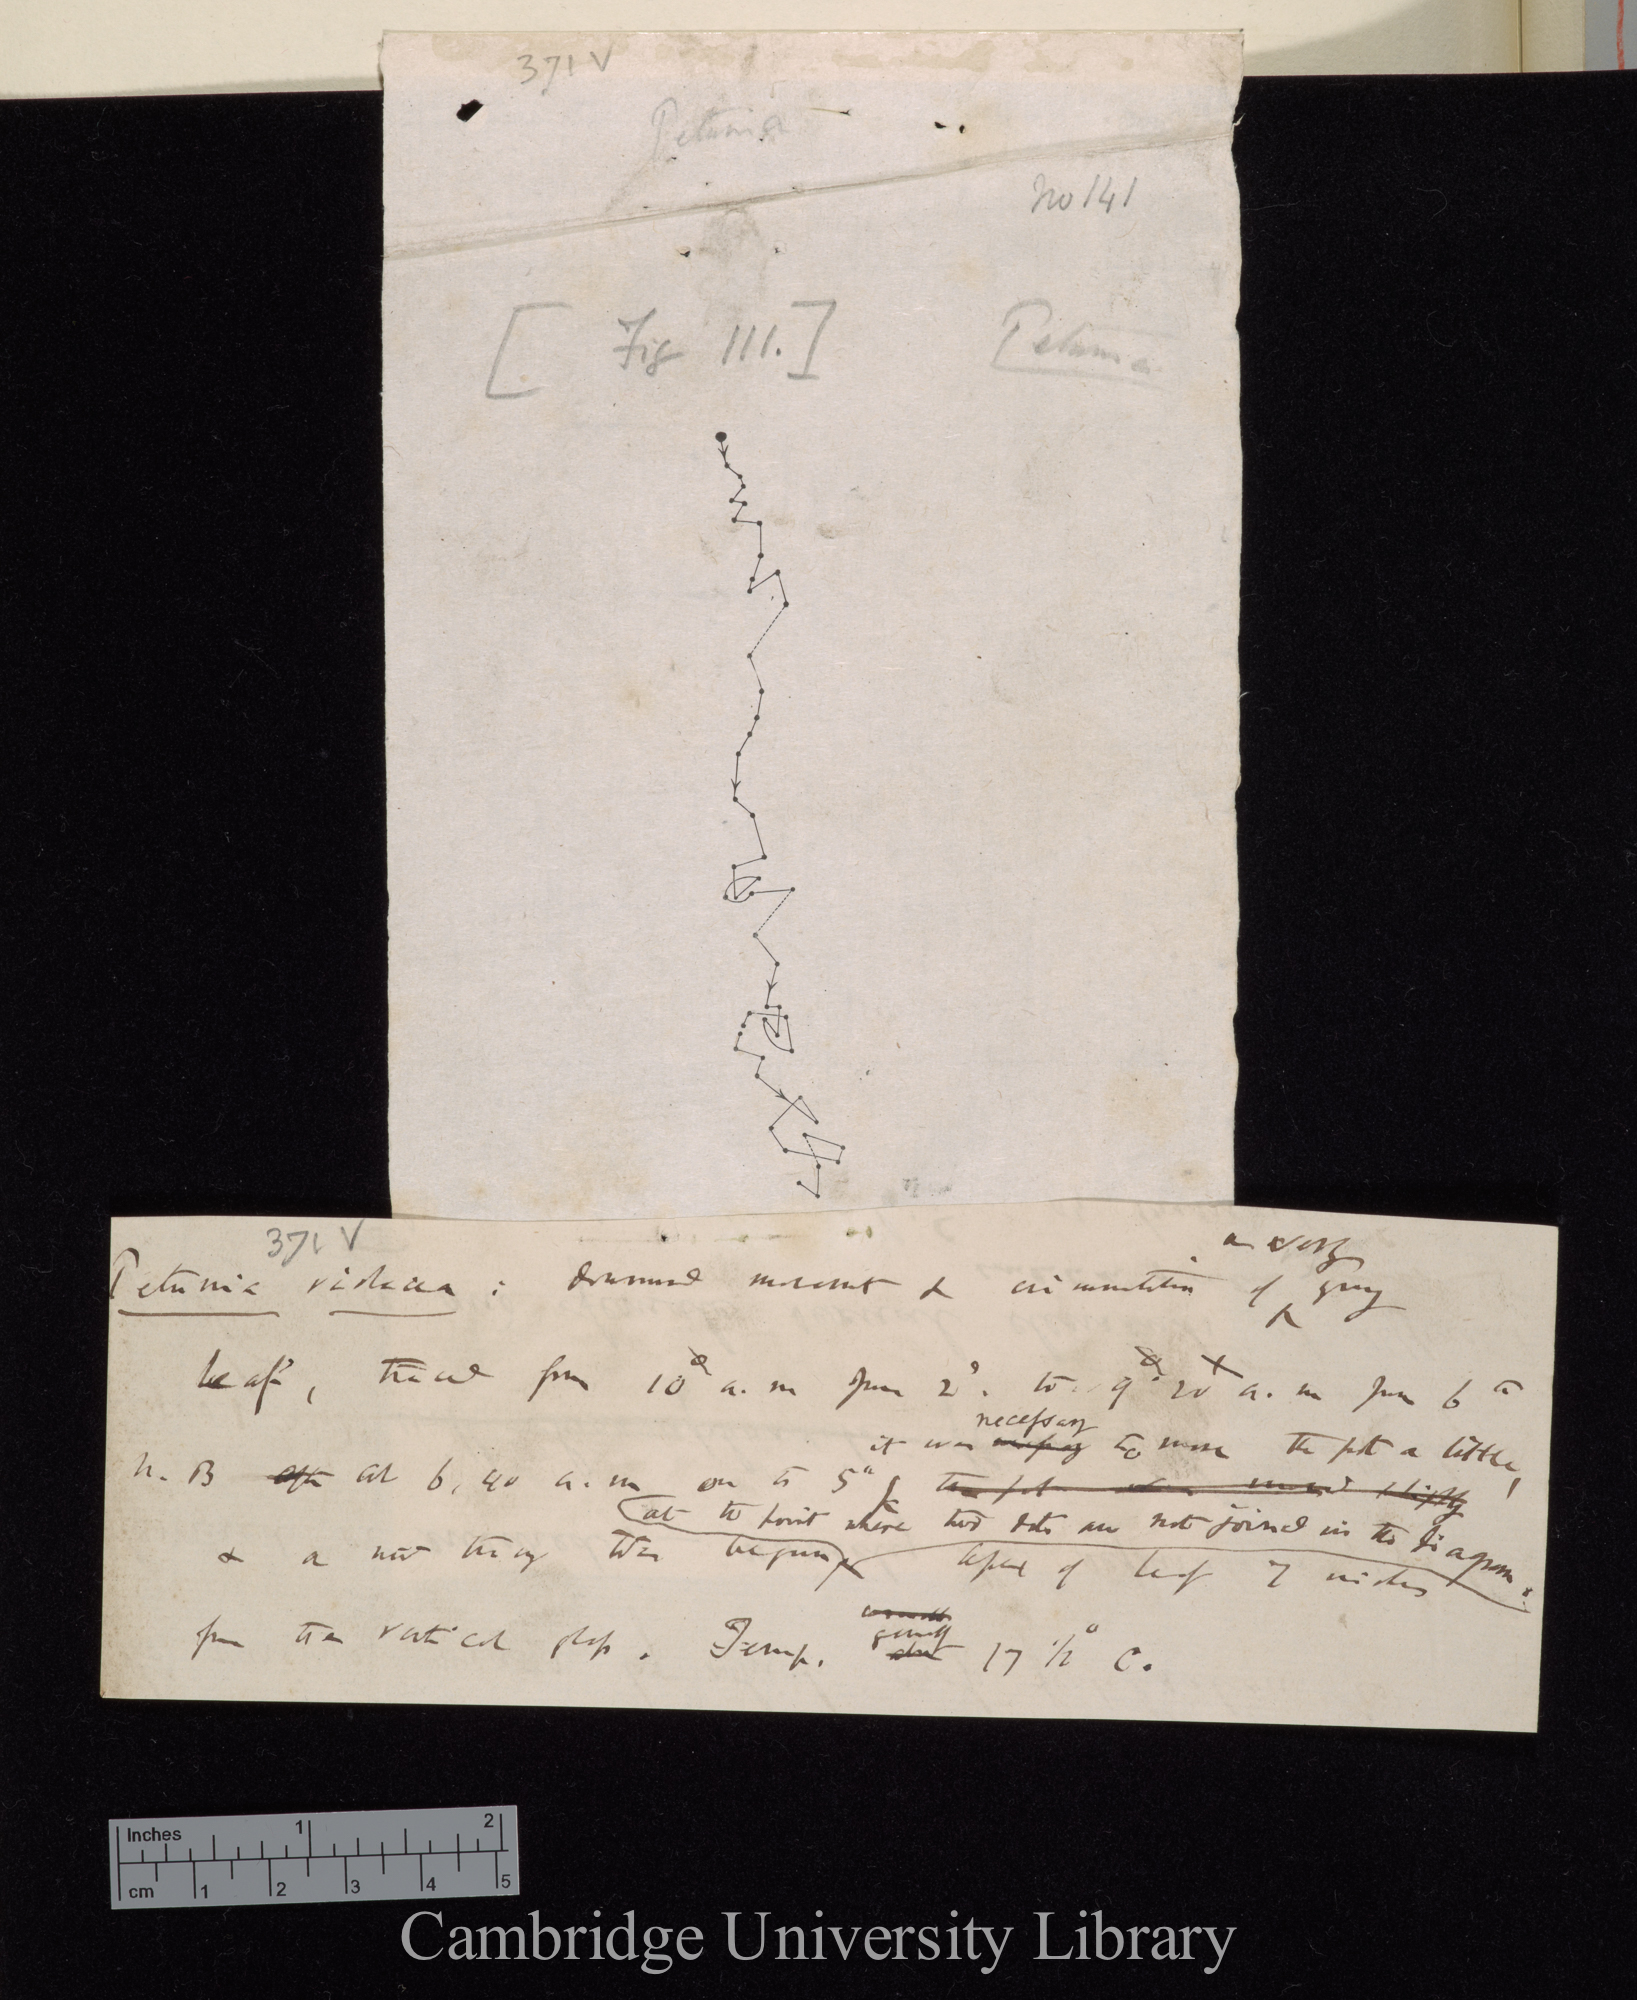 371 V
Petunia
No 141
[ Fig 111. ]
Petunia
371 V
a very
Petunia violacea : downward movement & circumnutation of ^ young
leaf, traced from 10 a. m June 2d. to 9. 20 a. m June 6th
necessary
it was to move the pot a little,
N. B at 6, 40 a. m on the 5th
at the point where two dots are not joined in the diagram.
& a new tracing then begun Apex of leaf 7 inches
from the vertical glass. Temp. generally 17 1/2° C.
Inches 1 2
cm 1 2 3 4 5
Cambridge University Library